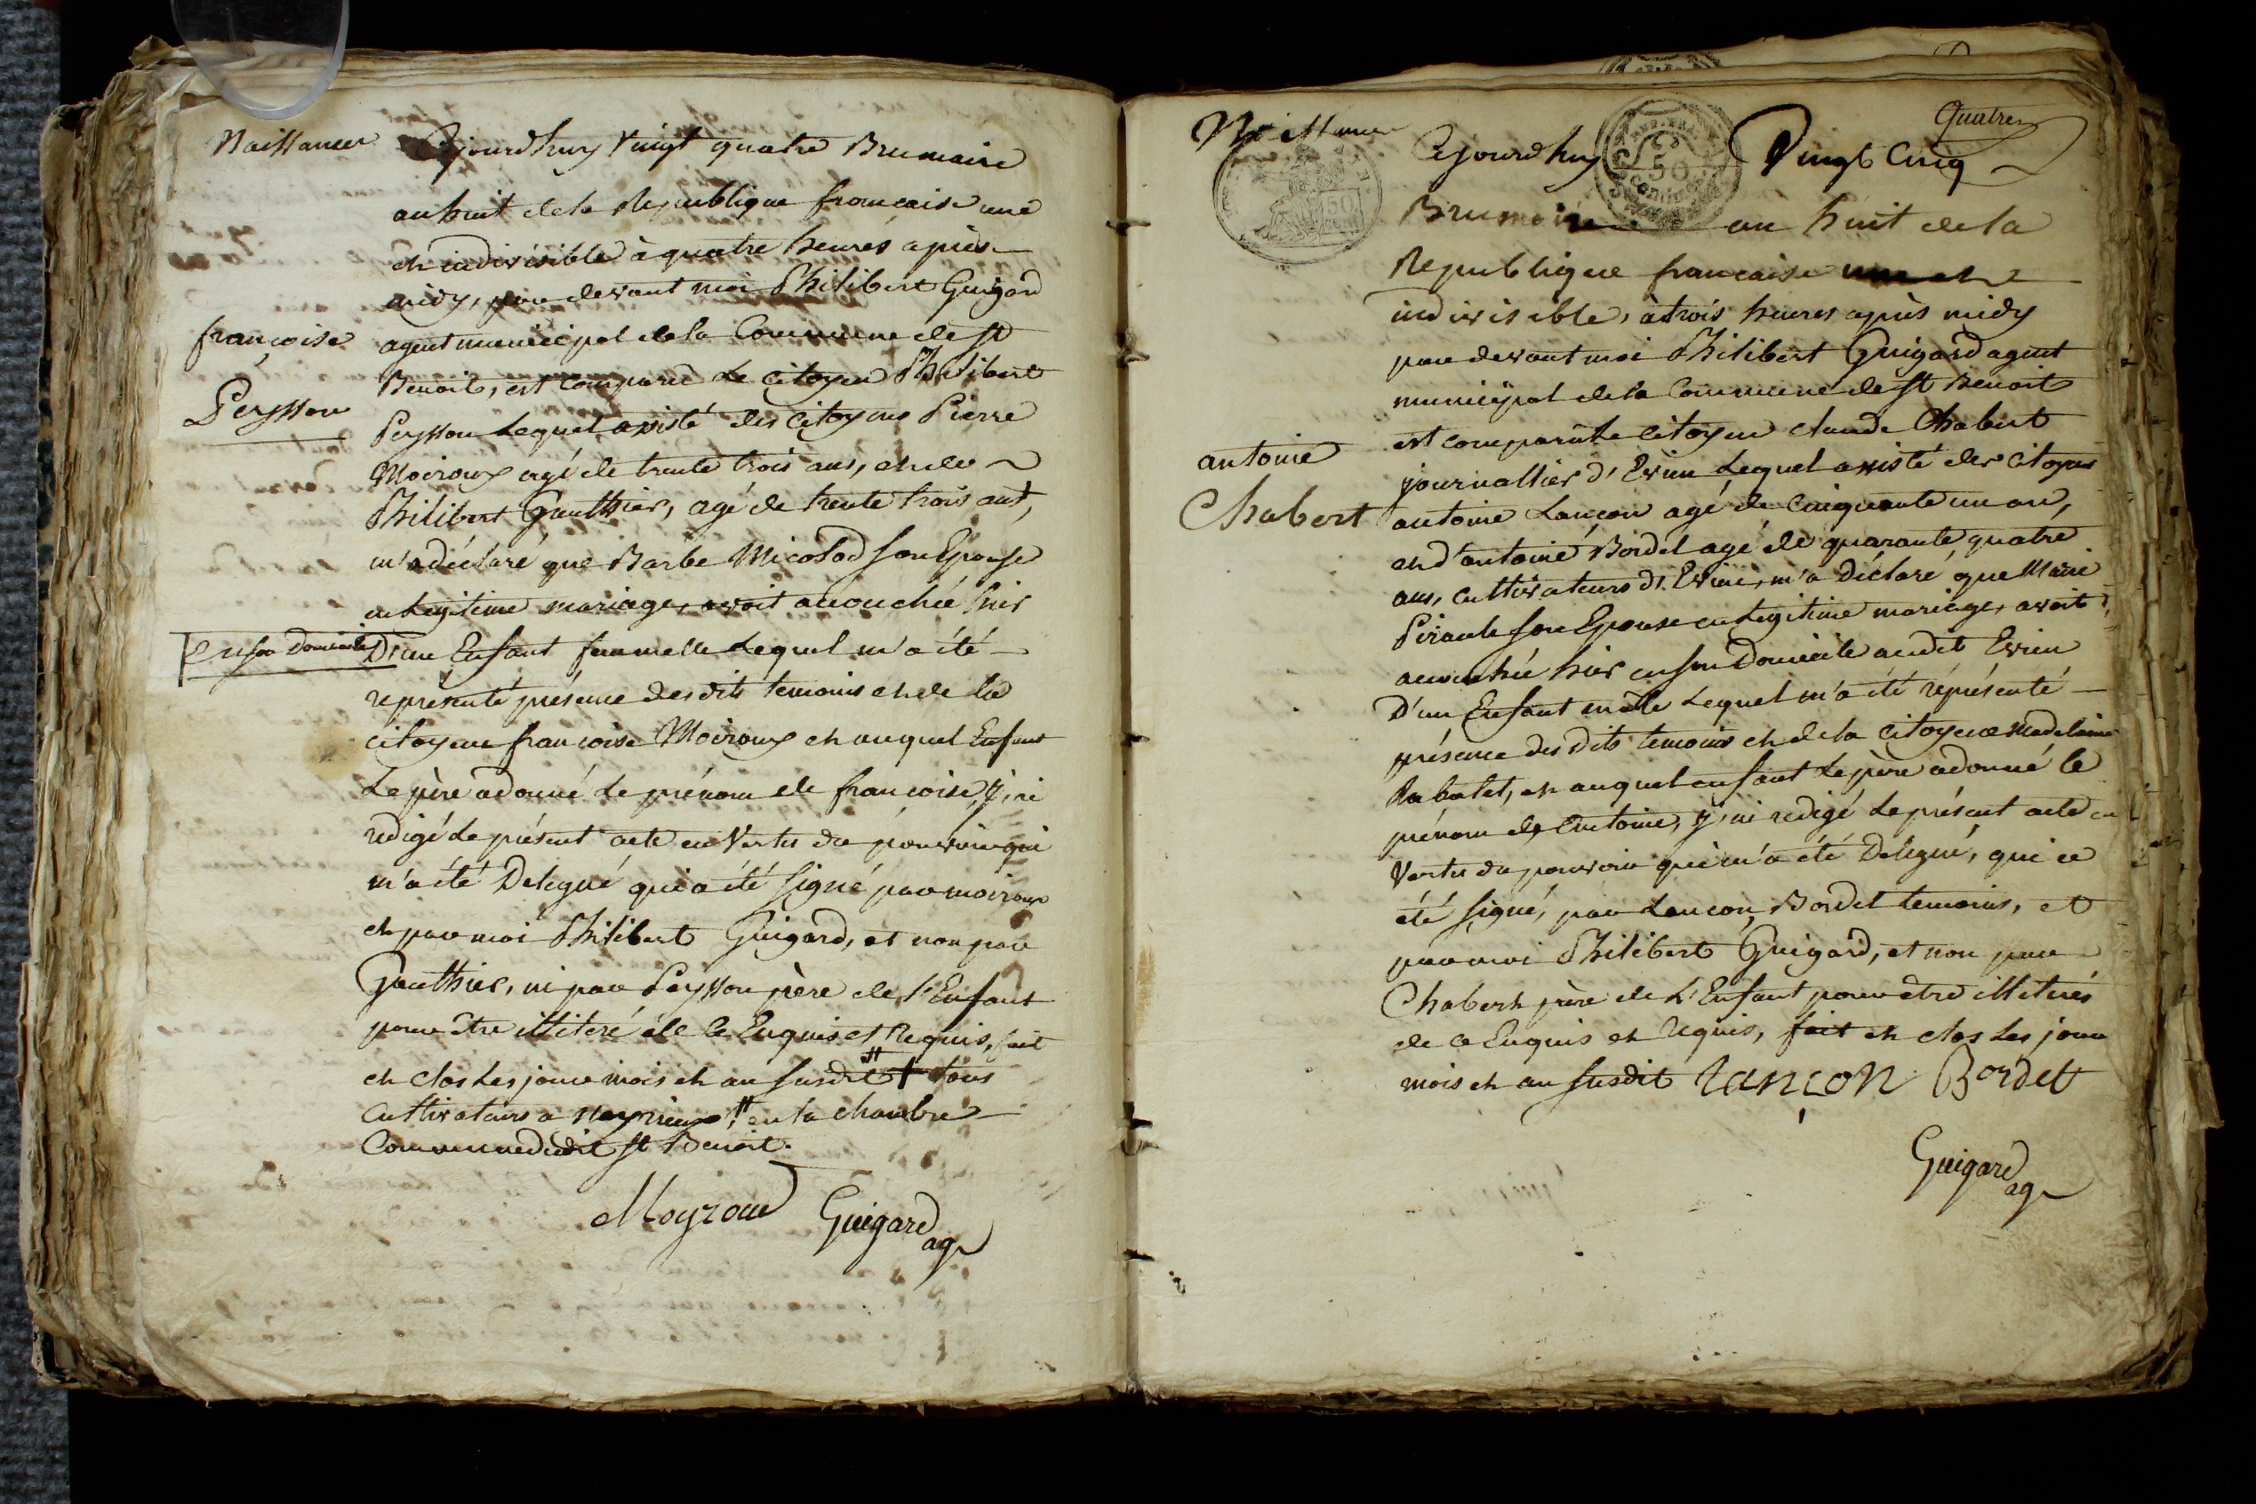 Naissance
Cejourdhuy Vingt quatre Brumaire
an huit de la Republique francaise une
et indivisible à quatre heures après
midy, par devant moi Philibert Guigard
françoise
agent municipal de la Commune de st
Benoit, est comparu Le citoyen Philibert
Peysson
Peysson Lequel assisté des Citoyens Pierre
Moiroux agé de trente trois ans, et de
Philibert Gauthier, agé de trente trois ans,
m'a déclaré que Barbe Micolod son Epouse
en Legitime mariage, avoit accouchée hier
En son Domicile
D'un Enfant fammelle Lequel m'a été
représenté présence desdits temoins et de la
citoyene francoise Moiroux et auquel Enfant
Le père a donné Le prénom de francoise, j'ai
redigé Le présent acte en Vertu du pouvoir qui
m'a été Delegué qui a été signé par moiroux
et par moi Philibert Guigard, et non par
Gauthier, ni par Peysson père de l'Enfant
pour être illiteré de ce Enquis et Requis, fait
et clos Les jour mois et an susdit # † tous
Cultivateurs a # en la chambre
Commune dudit st Benoit.
Moyroud Guigard
ag
Quatre
Naissance
50
centimes
Cejourdhuy Vingt Cinq
Brumaire an huit de la
Republique francaise une et
indivisible, à trois heures après midy
par devant moi Philibert Guigard agent
municipal de la Commune de st Benoit
est comparu Le citoyen claude Chabert
antoine
journallier d'Evieu Lequel assisté des Citoyens
Chabert
antoine Lançon agé de Cinquante un an,
et d'antoine Bordet agé de quarante quatre
ans, cultivateurs d'Evieu, m'a Déclaré que Marie
son Epouse en Legitime mariage, avoit
accouchée hier en son Domicile audit Evieu
D'un Enfant mâle Lequel m'a été réprésenté
présence des dits temoins et de la citoyene Madelaine
Rabatet, et auquel enfant Le père a donné le
prénom de antoine, j'ai redigé Le présent acte en
Vertu du pouvoir qui m'a été Delegué, qui a
été signé, par Lançon, Bordet temoins, et
par moi Philibert Guigard, et non par
Chabert père de L'Enfant pour être illiterés
de ce Enquis et Requis, fait et clos Les jour
mois et an susdit Lançon Bordet
Guigard
ag